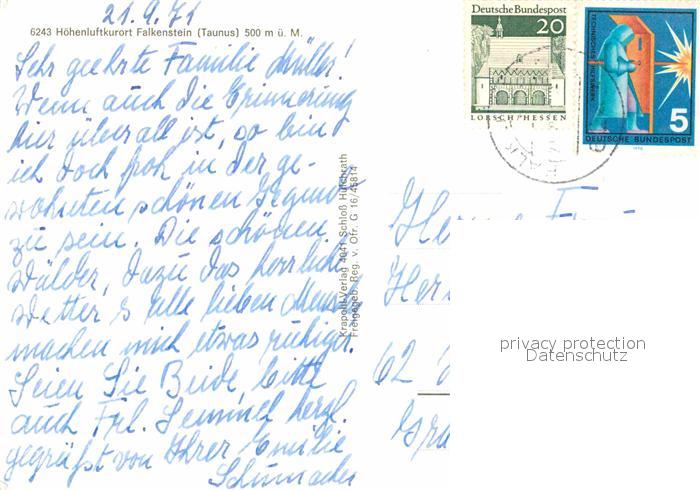 21.9.71
6243 Höhenluftkurort Falkenstein (Taunus) 500 m ü. M.
Sehr geehrte Familie Müller!
Wenn auch die Erinnerung
hier überall ist, so bin
ich doch froh in der ge-
wohnten schönen Gegend
zu sein. Die schönen
Wälder, dazu das herrliche
Wetter & alle lieben Mensch
machen mich etwas ruhiger.
Seien Sie Beide, bitte
auch Frl. Semmel herzl.
gegrüßt von Ihrer Emilie
Schumacher
Krapohl-Verlag 4041 Schloß Hülchrath
Freigegeb. Reg. v. Obr. G 16/45814
Deutsche Bundespost
20
LORSCH/HESSEN
TECHNISCHES HILFSWERK
5
DEUTSCHE BUNDESPOST
1970
Her
62
privacy protection
Datenschutz